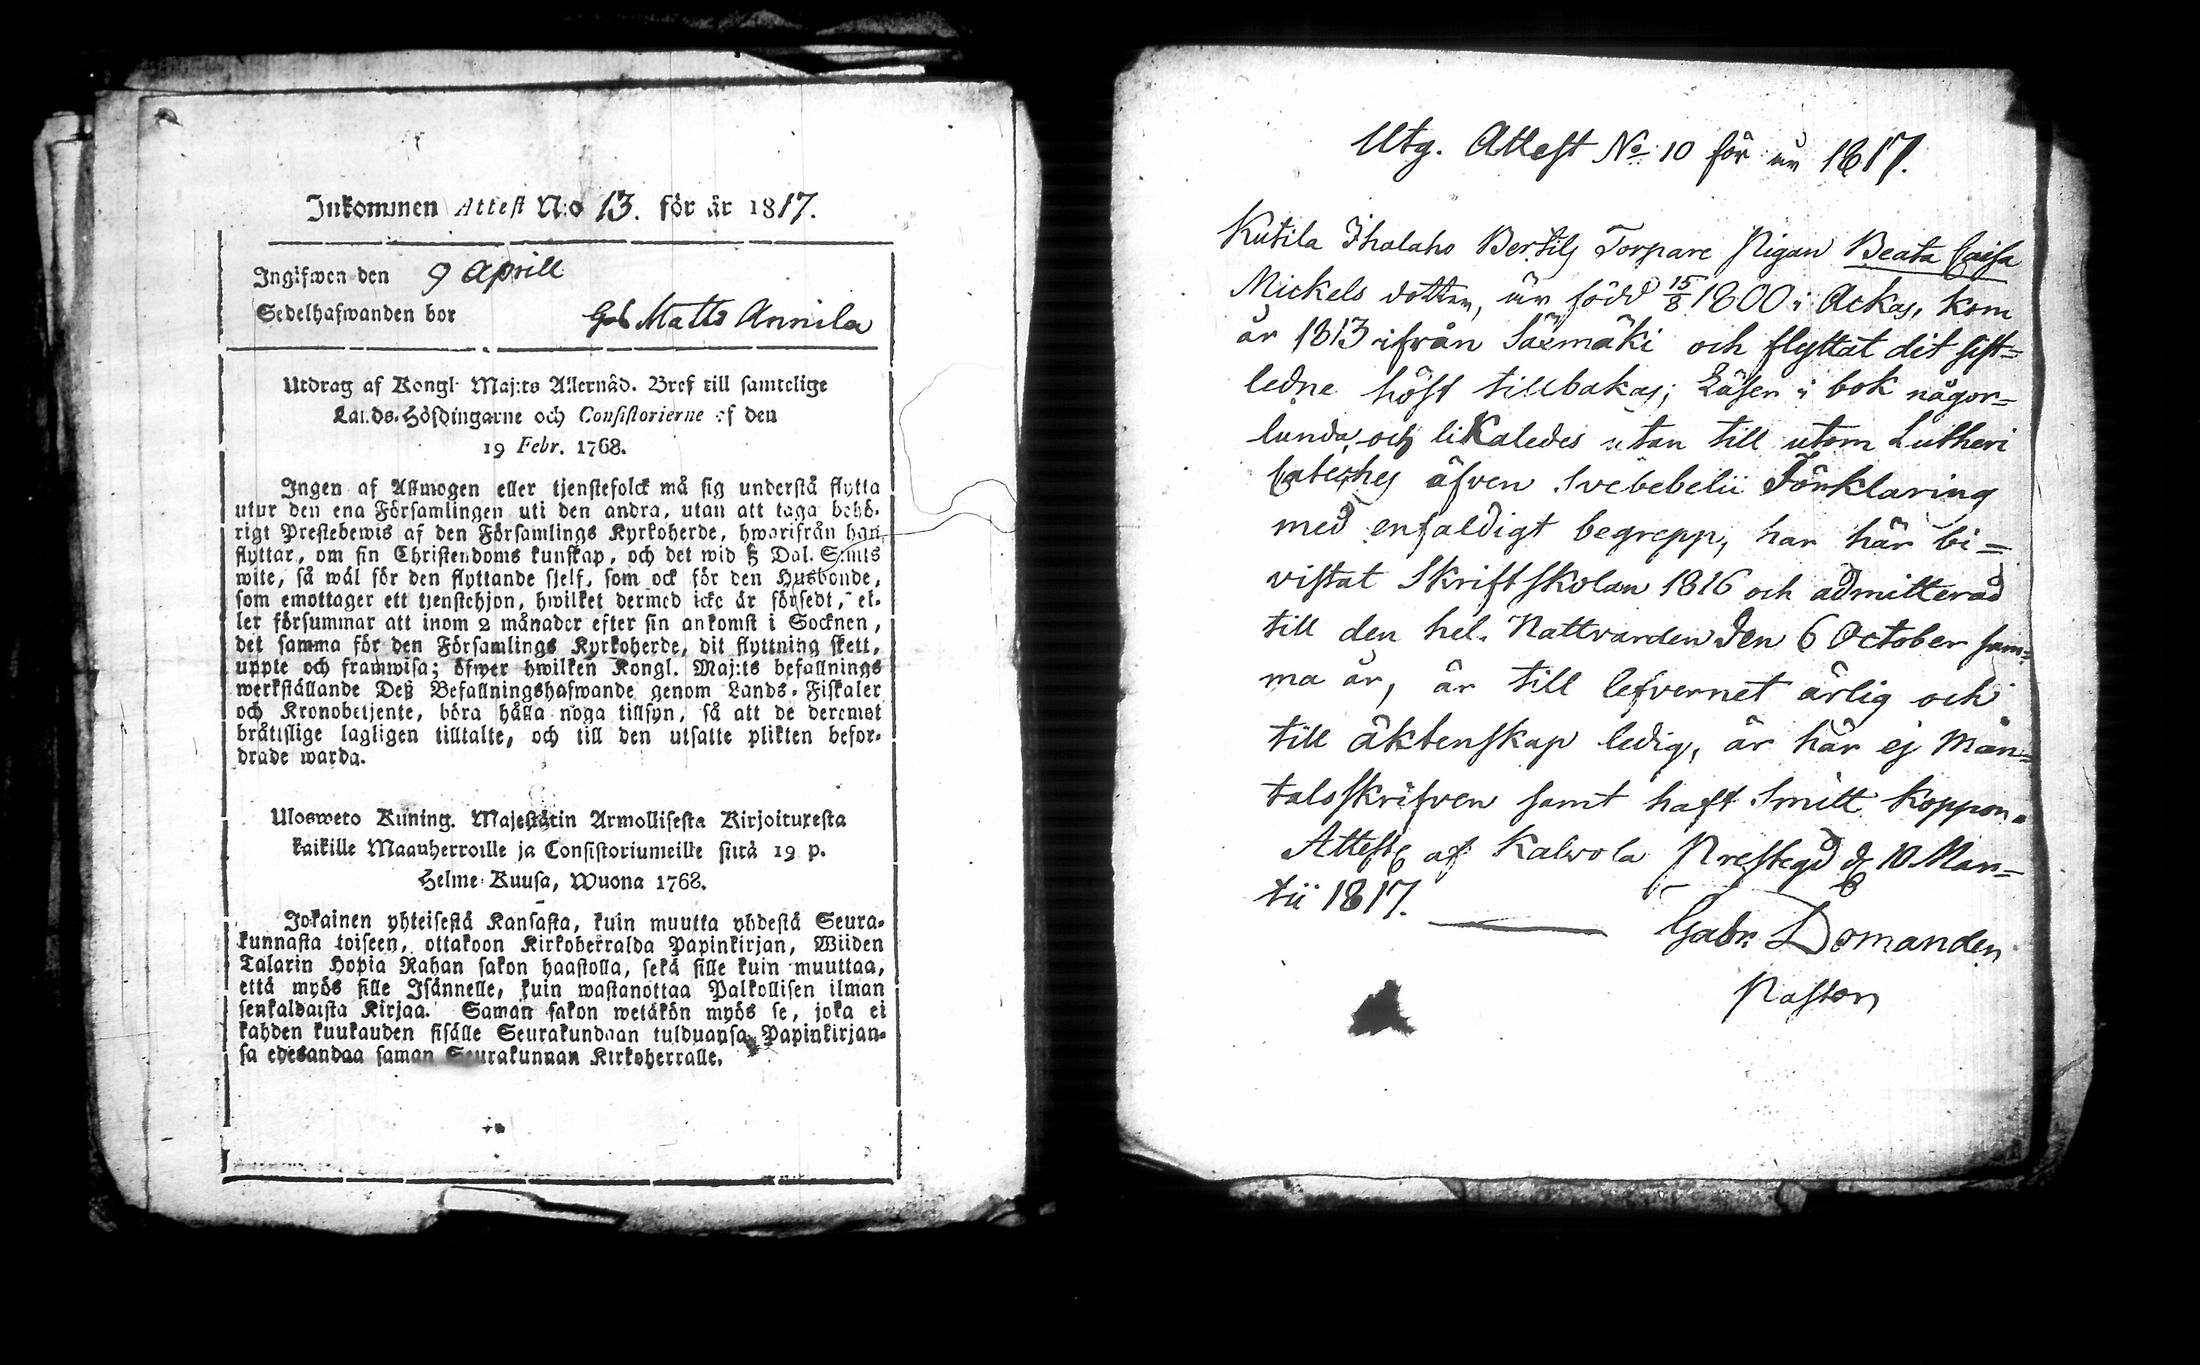 Inkommen Attest N:o 13. för år 1817.
Ingifwen den 9 Aprill
Sedelhafwanden bor Matts Annila
Utdrag af Kongl. Maj:ts Allernåd. Bref till samtelige
Lands-Höfdingarne och Consistorierne af den
19 Febr. 1768.
Ingen af Allmogen eller tjenstefolck må sig understå flytta
utur den ena Församlingen uti den andra, utan att taga behö-
rigt Prestebewis af den Församlings Kyrkoherde, hwarifrån han
flyttar, om sin Christendoms kunskap, och det wid 5 Dal. S:mts
wite, så wäl för den flyttande sielf, som ock för den Husbonde,
som emottager ett tjenstehjon, hwilket dermed icke är försedt, el-
ler försummar att inom 2 månader efter sin ankomst i Socknen,
det samma för den Församlings Kyrkoherde, dit flyttning skett,
uppte och framwisa; öfwer hwilken Kongl. Maj:ts befallnings
werkställande Deß Befallningshafwande genom Lands-Fiskaler
och Kronobetjente, böra hålla noga tillsyn, så att de deremot
bråttslige lagligen tilltalte, och till den utsatte plikten befor-
drade warda.
Ulosweto Kuning. Majestätin Armollisesta Kirjoituxesta
kaikille Maanherroille ja Consistoriumeille siitä 19 p.
Helme-Kuusa, Wuona 1768.
Jokainen yhteisestä Kansasta, kuin muutta yhdestä Seura-
kunnasta toiseen, ottakoon Kirkoherralda Papinkirjan, Wiiden
Talarin Hopia Rahan sakon haastolla, sekä sille kuin muuttaa,
että myös sille Isännelle, kuin wastanottaa Palkollisen ilman
senkaldaista Kirjaa. Saman sakon wetäkön myös se, joka ei
kahden kuukauden sisälle Seurakundaan tulduansa Papinkirjan-
sa edesandaa saman Seurakunnan Kirkoherralle.
Utg. Attest No 10 för år 1817.
Kutila Ihalaho Bertils Torpare Pigan Beata Caisa
Mickels dotter, är född 15/8 1800 i Ackas, kom
år 1813 ifrån Säxmäki och flyttat dit sist=
ledne höst tillbakas; Läser i bok någor=
lunda, och likaledes utan till utom Lutheri
Cateches äfven Svebebelii Förklaring
med enfaldigt begrepp, har här bi=
vistat Skriftskolan 1816 och admitterad
till den hel. Nattvarden den 6 October sam=
ma år, är till lefvernet ärlig och
till äktenskap ledig, är här ej Man=
talsskrifven samt haft Smitt koppor.
Attest: af Kalvola Prestegd d. 10 Mar=
tii 1817.
Gabr. Domander
Pastor